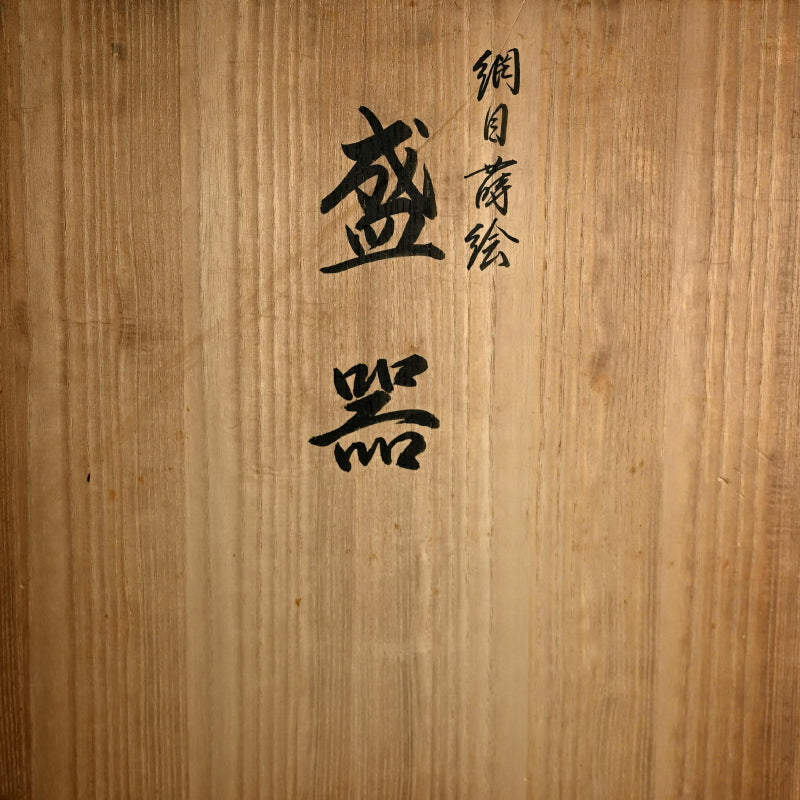 網目蒔絵
盛器